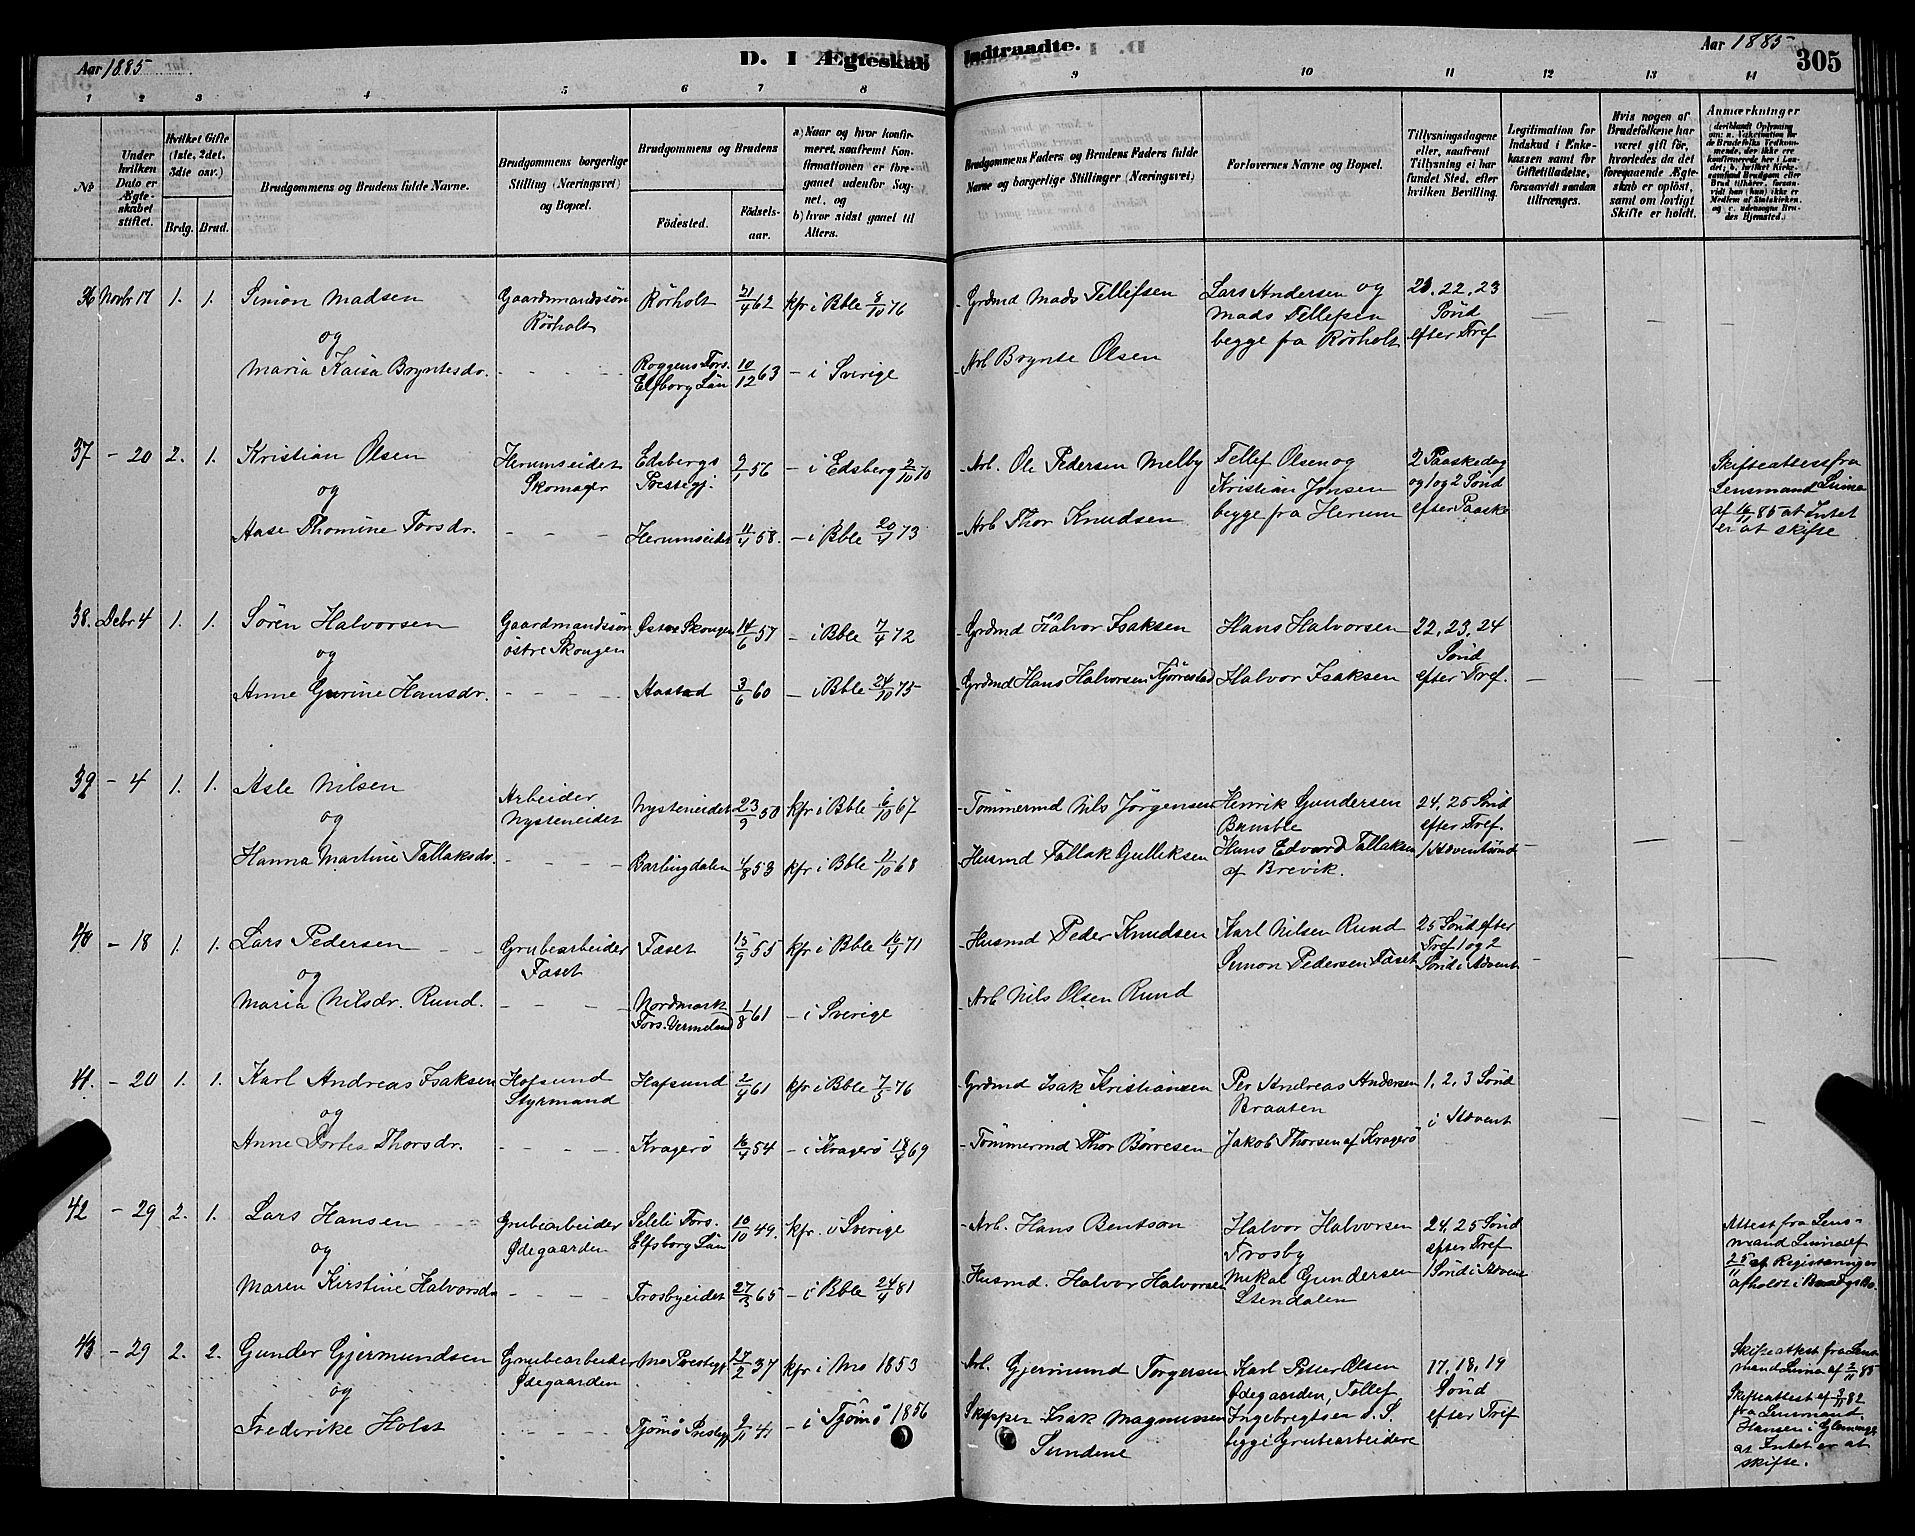 Aar 1885
D. I Ægteskab
Indtraadte.
Aar 1885
305
1 2 3 4 5 6 7 8 9 10 11 12 13 14
№
Under hvilken Dato er Ægteskabet stiftet.
Hvilket Gifte (1ste, 2det, 3die osv.)
Brdg. Brud.
Brudgommens og Brudens fulde Navne.
Brudgommens borgerlige Stilling (Næringsvei) og Bopæl.
Brudgommens og Brudens
Fødested.
Fødselsaar.
a) Naar og hvor konfirmeret, saafremt Konfirmationen er foregaaet udenfor Sognet, og
b) hvor sidst gaaet til Alters.
Brudgommens Faders og Brudens Faders fulde Navne og borgerlige Stillinger (Næringsvei)
Forlovernes Navne og Bopæl.
Tillysningsdagene eller, saafremt Tillysning ei har fundet Sted, efter hvilken Bevilling.
Legitimation for Indskud i Enkekassen samt for Giftetilladelse, forsaavidt saadan tiltrænges.
Hvis nogen af Brudefolkene har været gift før, hvorledes da det foregaaende Ægteskab er opløst, samt om lovligt Skifte er holdt.
Anmærkninger
36 Novbr 17 1. 1. Simon Madsen
og
Maria Kaisa Bryntesdr.
Gaardmandssøn
Rörholt
Rörholt 21/4 62 kfr i Bble 8/10 76
Roggens Fors.
Elfborg Län 10/12 63 – i Sverige
Grdmd Mads Tellefsen
Arb Brynte Olsen
Lars Andersen og
Mads Tellefsen
begge fra Rörholt
21, 22, 23
Sönd
efter Tref
37 – 20 2. 1. Kristian Olsen
og
Aase Thomine Torsdr.
Herumseidet
Skomager
Edsbergs
Prestegj. 9/1 56 – i Edsberg 2/10 70
Herumseidet 11/4 58. – i Bble 20/4 73
Arb. Ole Pedersen Melby
Arb Thor Knudsen
Tellef Olsen og
Kristian Jonsen
begge fra Herum
2 Paaskedag
og 1 og 2 Sönd
efter Paaske
Skifteattest fra
Lensmand Linna
af 16/11 85 at Intet
er at skifte
38. Debr 4 1. 1. Sören Halvorsen
og
Anne Gurine Hansdr.
Gaardmandssön
östre Skougen
Östre Skougen 14/6 57 – i Bble 7/4 72
Aastad 3/6 60 – i Bble 24/10 75
Grdmd Halvor Isaksen
Grdmd Hans Halvorsen Fjörestad
Hans Halvorsen
Halvor Isaksen
22, 23, 24
Sönd
efter Tref.
39 – 4 1. 1. Asle Nilsen
og
Hanna Martine Tallaksdr.
Arbeider
Nysteneidet
Nysteneidet 23/9 50 kfr i Bble 6/10 67
Barlingdalen 4/8 53 kfr i Bble 11/10 68
Tömmermd Nils Jörgensen
Husmd Tallak Gulliksen
Henrik Gundersen
Bamble
Hans Edvard Tallaksen
af Brevik.
24, 25 Sönd
efter Tref.
1 Adventsönd
40 – 18 1. 1. Lars Pedersen
og
Maria Nilsdr. Rund.
Grubearbeider
Faset
Faset 15/9 55 kfr i Bble 16/4 71
Nordmark
Fors. Vermeland 1/8 61 – i Sverige
Husmd Peder Knudsen
Arb Nils Olsen Rund
Karl Nilsen Rund
Simon Pedersen Faset
25 Sönd efter
Tref 1 og 2
Sönd i Advent
41. – 20 1. 1. Karl Andreas Isaksen
og
Anne Dortea Thorsdr.
Hafsund
Styrmand
Hafsund 2/9 61 kfr i Bble 7/5 76
Kragerö 16/4 54 – i Kragerö 18/4 69
Grdmd Isak Kristiansen
Tömmermd Thor Börresen
Per Andreas Andersen
Braaten
Jakob Thorsen af Kragerö
1, 2, 3 Sönd
i Advent
42 – 29 2. 1. Lars Hansen
og
Maren Kirstine Halvorsdr
Grubearbeider
Ödegaarden
Fors.
Elfsborg Län 10/10 49. kfr. i Sverige
Trosbyeidet 27/3 65 – i Bble 24/4 81
Arb. Hans Bentson
Husmd. Halvor Halvorsen
Halvor Halvorsen
Trosby
Mikal Gundersen
Stendalen
24, 25 Sönd
efter Tref
1 Sönd i Advent
Attest fra Lensmand
Linna af
25/11 at Registrering er
afholdt i
43 – 29 2. 2. Gunder Gjermundsen
og
Frederike Holst
Grubearbeider
Ödegaarden
Mo Prestegj 27/2 37 kfr i Mo 1853
Tjömö Prestegj 2/11 41 – i Tjömö 1856
Arb. Gjermund Torgersen
Skipper Isak Magnussen
Sundene
Karl Petter Olsen
Ödegaarden, Tellef
Ingebregtsen d. S.
begge Grubearbeidere
17, 18, 19
Sönd
efter Tref
Skifteattest fra Lensmand
Linna af 2/11 85
Skifteattest af 3/11 82
fra Lensmand
Hansen i Glemminge
at Intet er at
skifte.